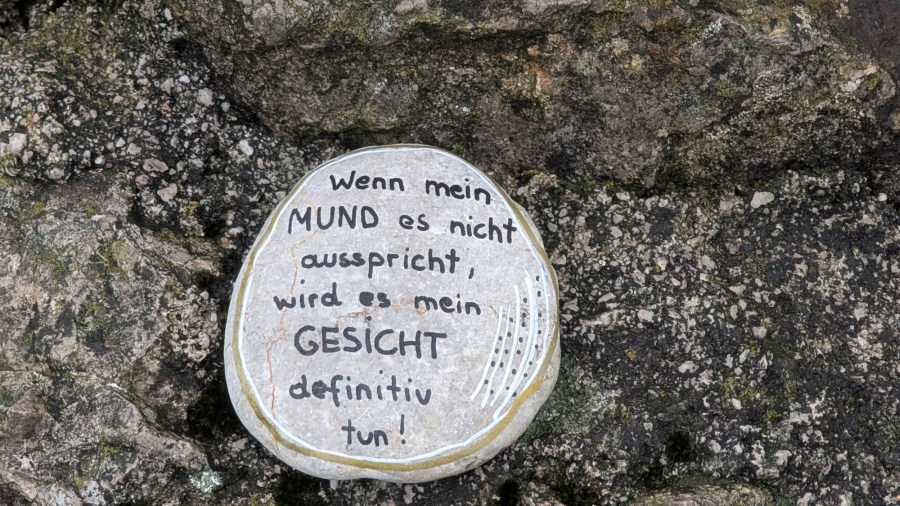 Wenn mein
MUND es nicht
ausspricht,
wird es mein
GESiCHT
definitiv
tun!